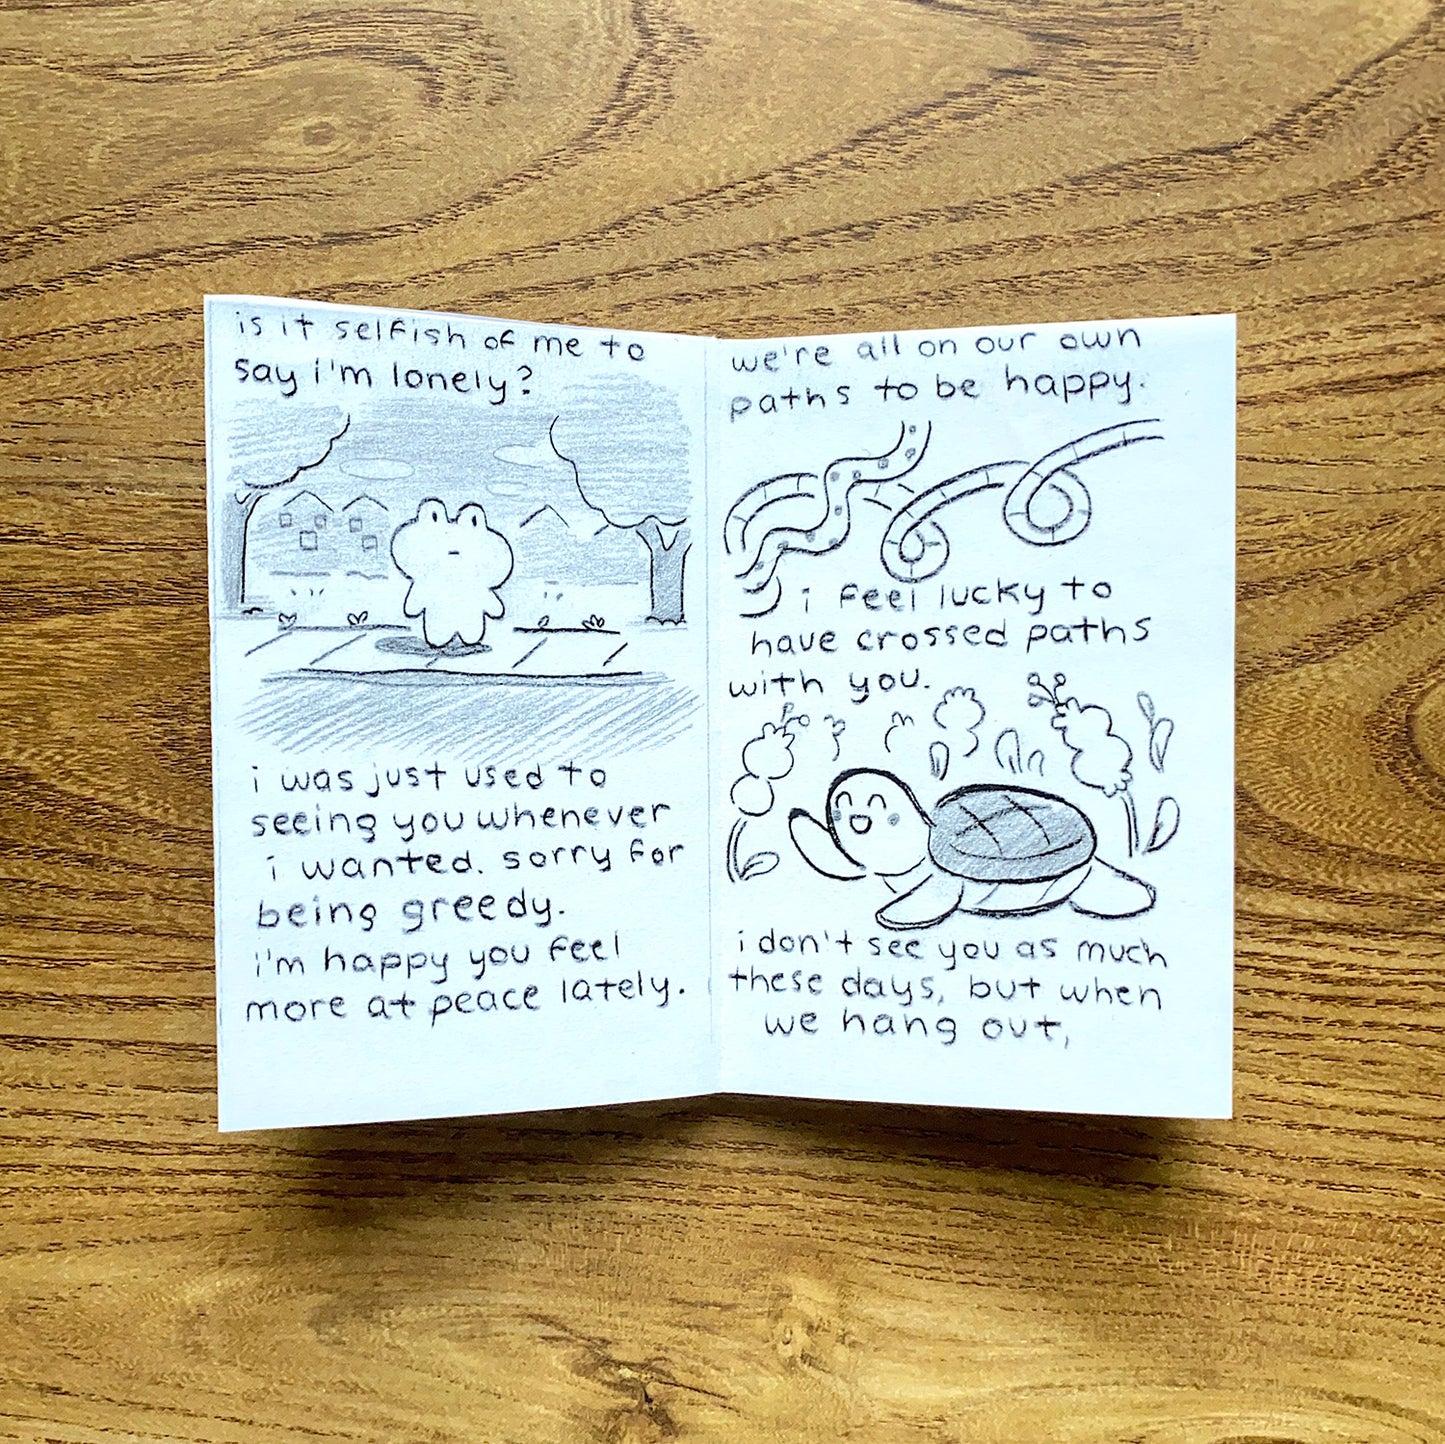 is it selfish of me to
say i'm lonely?
i was just used to
seeing you whenever
i wanted. sorry for
being greedy.
i'm happy you feel
more at peace lately.
we're all on our own
paths to be happy.
i feel lucky to
have crossed paths
with you.
i don't see you as much
these days, but when
we hang out,